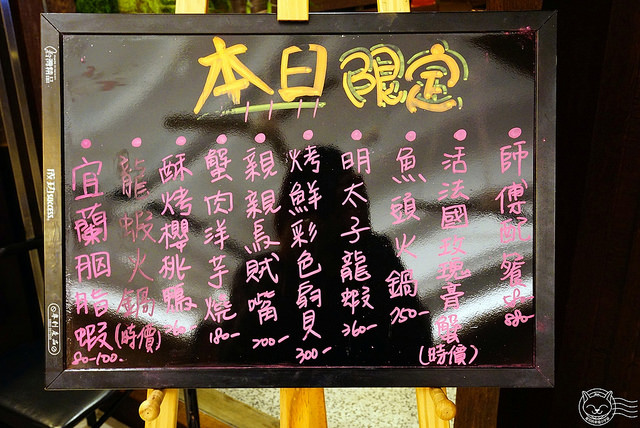 本日限定
師傅配餐
活法國玫瑰膏蟹(時價)
魚頭火鍋
明太子龍蝦 360-
烤鮮彩色扇貝 300-
親親烏賊嘴 200-
蟹肉洋芋燒 180-
酥烤櫻桃鴨
龍蝦火鍋(時價)
宜蘭胭脂蝦 80-100-
成功 success.